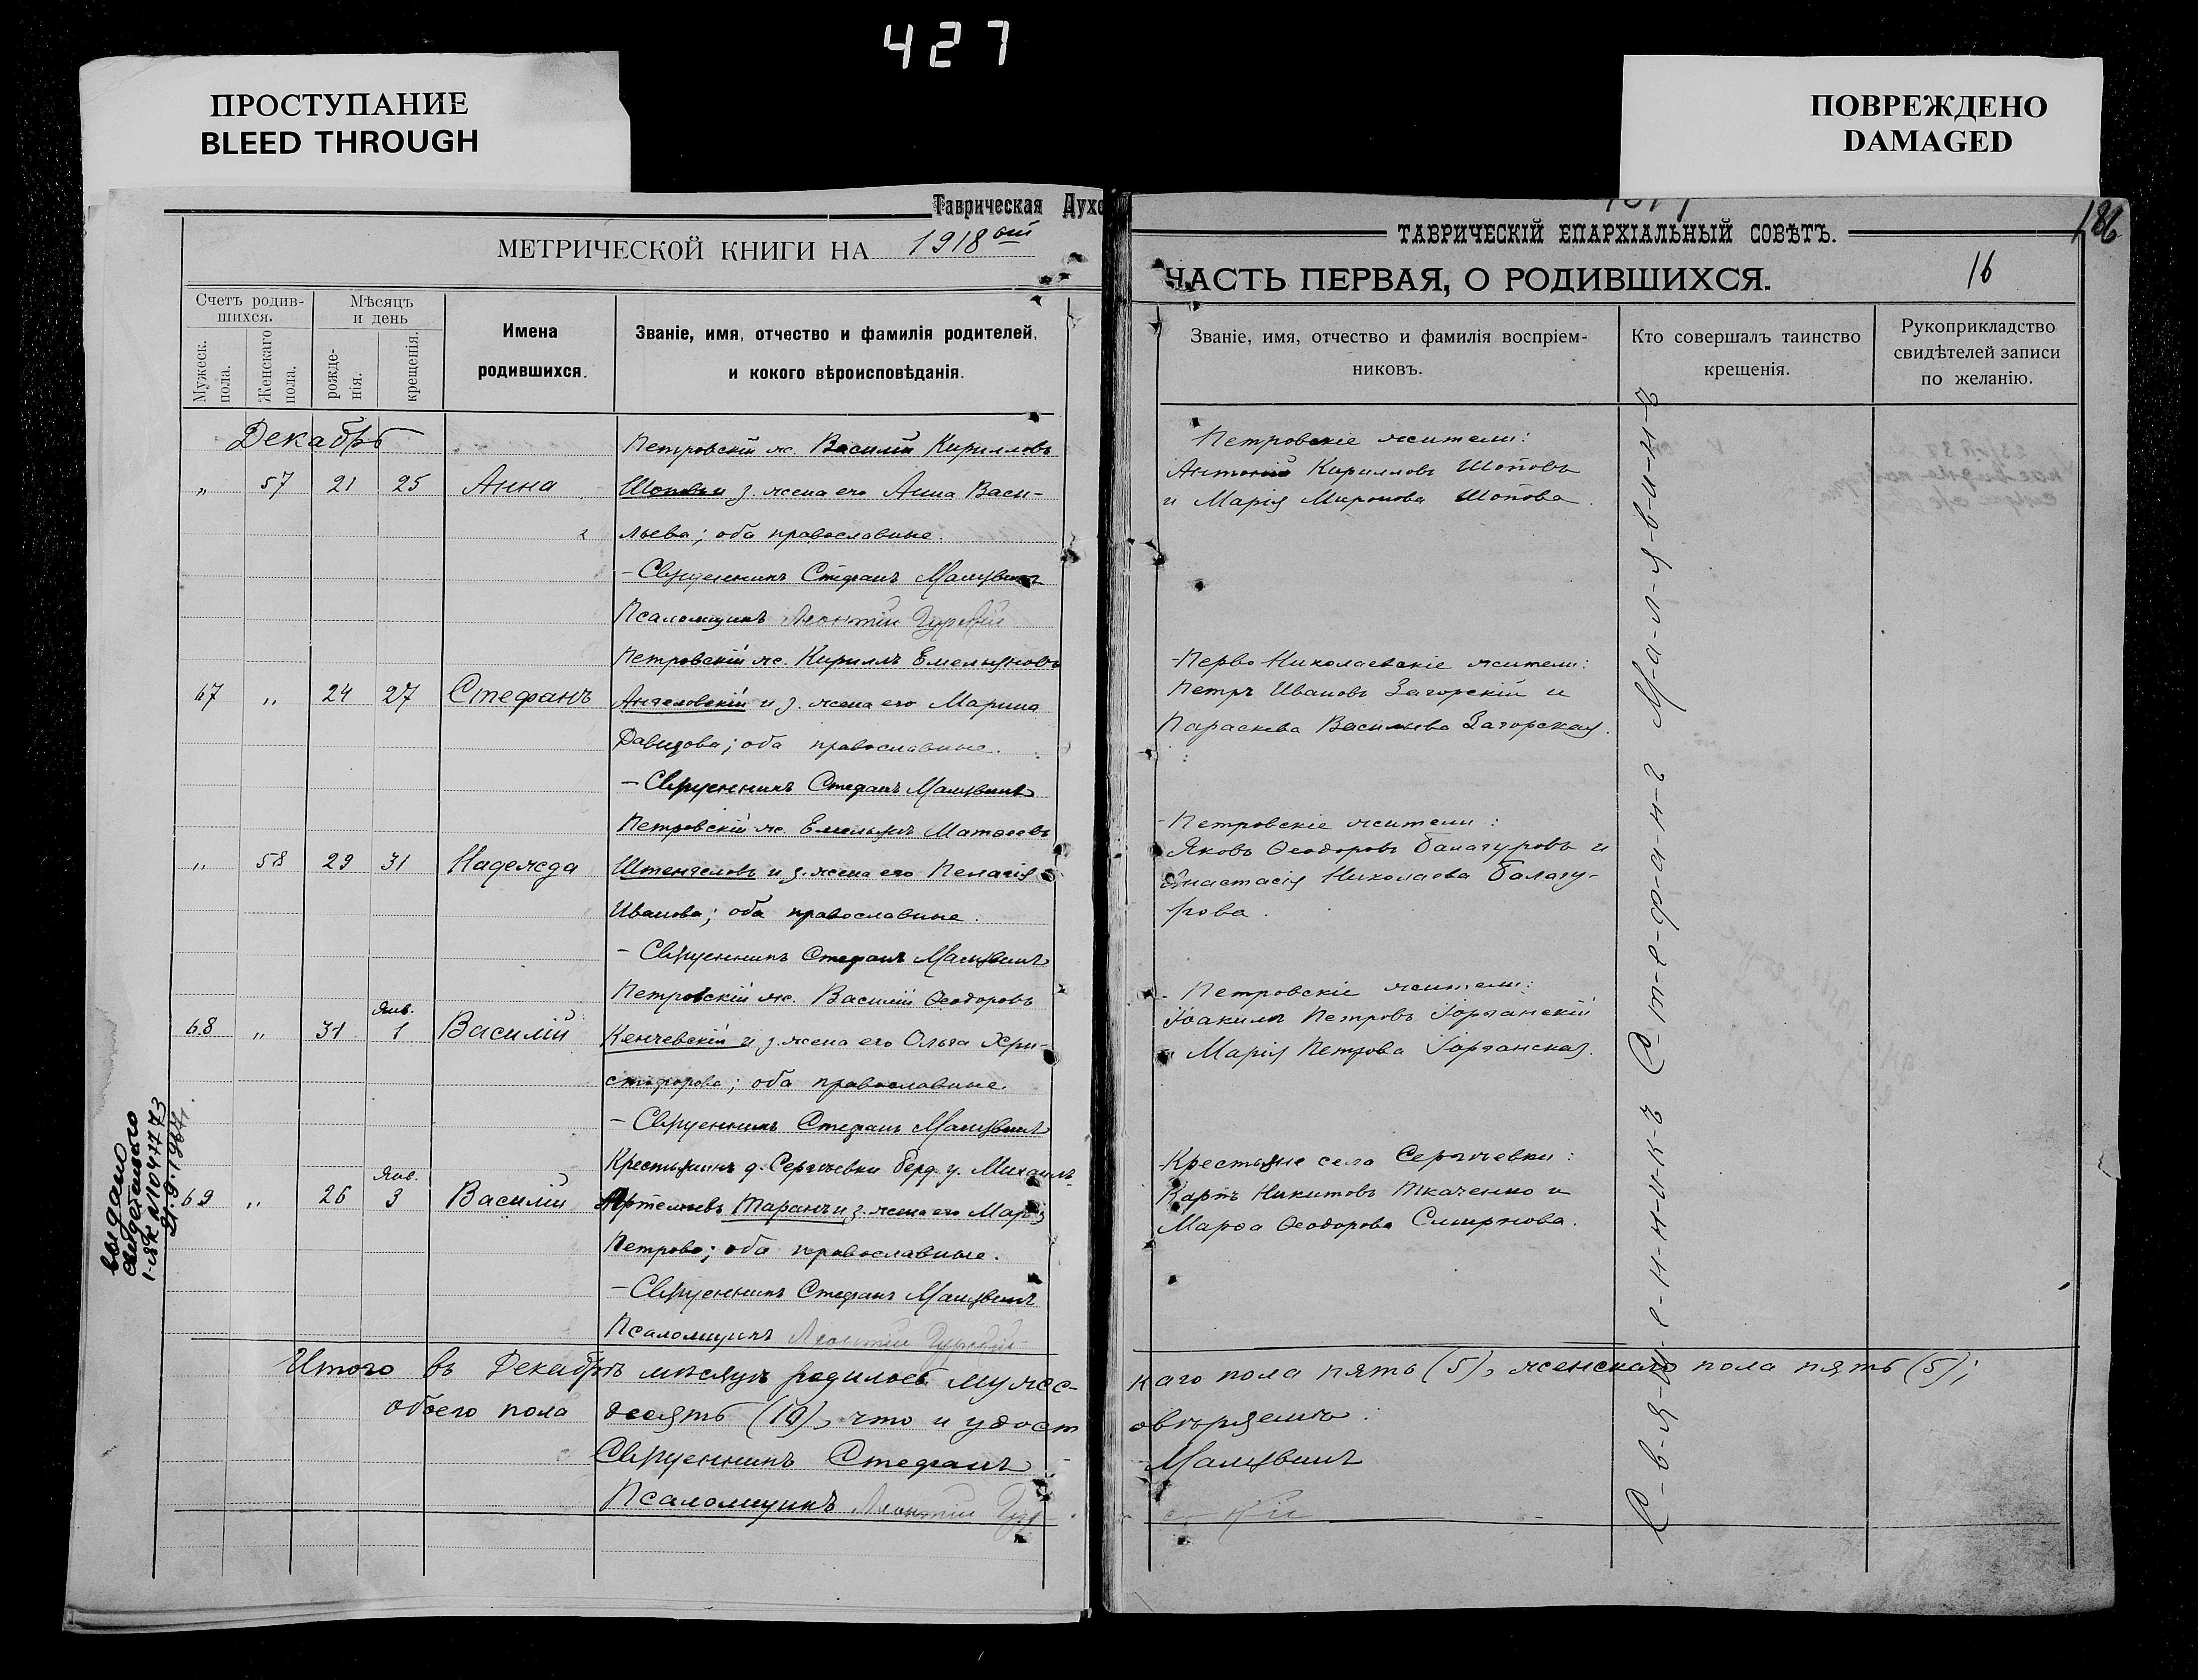 427
ПРОСТУПАНИЕ
BLEED THROUGH
ПОВРЕЖДЕНО
DAMAGED
Таврическая Духо
МЕТРИЧЕСКОЙ КНИГИ НА 1918 ый
Счетъ родив-
шихся.
Мѣсяцъ
и день
Мужеск.
пола.
Женскаго
пола.
рожде-
нія.
крещенія.
Имена
родившихся.
Званіе, имя, отчество и фамилія родителей,
и кокого вѣроисповѣданія.
Декабрь
Петровскій ж. Василій Кирилловъ
„ 57 21 25 Анна Шоповъ и з. жена его Анна Васи-
льева; оба православные.
– Священникъ Стефанъ Малявинъ
Псаломщикъ Леонтій
Петровскій ж. Кириллъ Емельяновъ
67 „ 24 27 Стефанъ Ангеловскій и з. жена его Марина
Давидова; оба православные.
– Священникъ Стефанъ Малявинъ
Петровскій ж. Емельянъ Матѳеевъ
„ 58 29 31 Надежда Штенгеловъ и з. жена его Пелагія
Иванова; оба православные.
– Священникъ Стефанъ Малявинъ
Петровскій ж. Василій Ѳеодоровъ
68 „ 31 Янв. 1 Василій Кенчевскій и з. жена его Ольга Хри-
стофорова; оба православные.
– Священникъ Стефанъ Малявинъ
Крестьянинъ д. Сергѣевки Берд. у. Михаилъ
69 „ 26 Янв. 3 Василій Артемьевъ Таранъ и з. жена его Марія
Петрова; оба православные.
– Священникъ Стефанъ Малявинъ
Псаломщикъ Леонтій
выдано
свидетельство
21.9.1967г.
Итого въ Декабрѣ мѣсяцѣ родилось мужес-
обоего пола десять (10), что и удост
Священникъ Стефанъ
Псаломщикъ Леонтій
186
ТАВРИЧЕСКІЙ ЕПАРХІАЛЬНЫЙ СОВѢТЪ.
ЧАСТЬ ПЕРВАЯ, О РОДИВШИХСЯ. 16
Званіе, имя, отчество и фамилія воспріем-
никовъ.
Кто совершалъ таинство
крещенія.
Рукоприкладство
свидѣтелей записи
по желанію.
Петровскіе жители:
Антоній Кирилловъ Шоповъ
и Марія Миронова Шопова.
Перво-Николаевскіе жители:
Петръ Ивановъ Загорскій и
Параскева Васильева Загорская.
Петровскіе жители:
Яковъ Ѳеодоровъ Балагуровъ и
Анастасія Николаева Балагу-
рова.
Петровскіе жители:
Іоакимъ Петровъ
и Марія Петрова
Крестьяне села Сергѣевки:
Карпъ Никитовъ Ткаченко и
Марѳа Ѳеодорова Смирнова.
С-в-я-щ-е-н-н-и-к-ъ С-т-е-ф-а-н-ъ М-а-л-я-в-и-н-ъ
каго пола пять (5), женскаго пола пять (5);
овѣряемъ:
Малявинъ